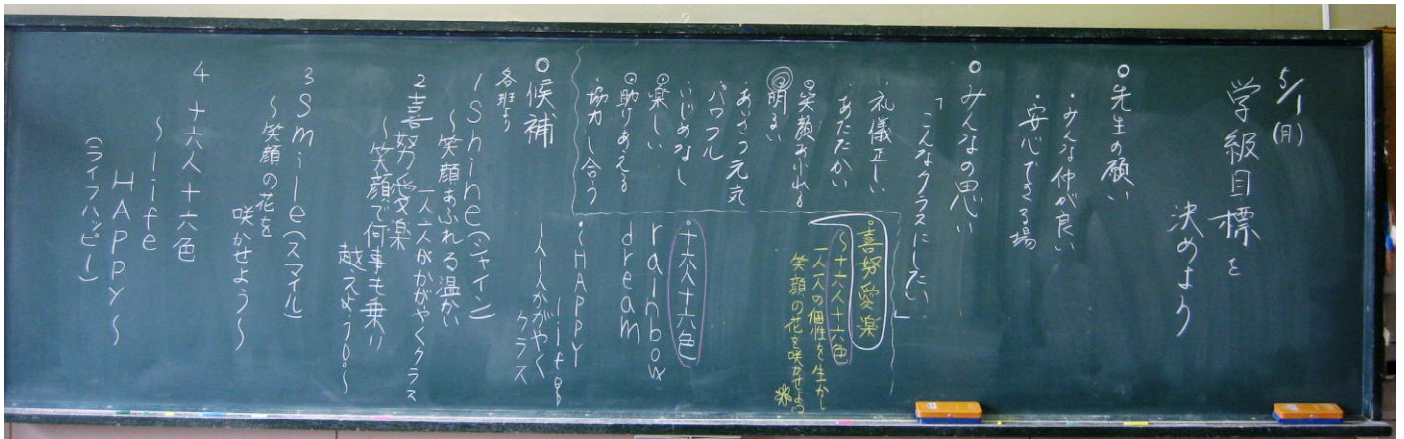 5/1(月)
学級目標を
決めよう
○先生の願い
・みんな仲が良い
・安心できる場
○みんなの思い
「こんなクラスにしたい」
・礼儀正しい
・あたたかい
・笑顔あふれる
・明るい
・あいさつ元気
・パワフル
・いじめなし
・楽しい
・助けあえる
・協力し合う
・喜努愛楽
〜十六人十六色
一人一人の個性を生かし
笑顔の花を咲かせよう
・十六人十六色
rainbow
dream
・〜HAPPY
life
一人一人がかがやく
クラス
○候補
各班より
1 Shine(シャイン)
〜笑顔あふれる温かい
一人一人がかがやくクラス
2 喜努愛楽
〜笑顔で何事も乗り
越えよう〜
3 Smile(スマイル)
〜笑顔の花を
咲かせよう〜
4 十六人十六色
〜life
HAPPY〜
(ライフハッピー)